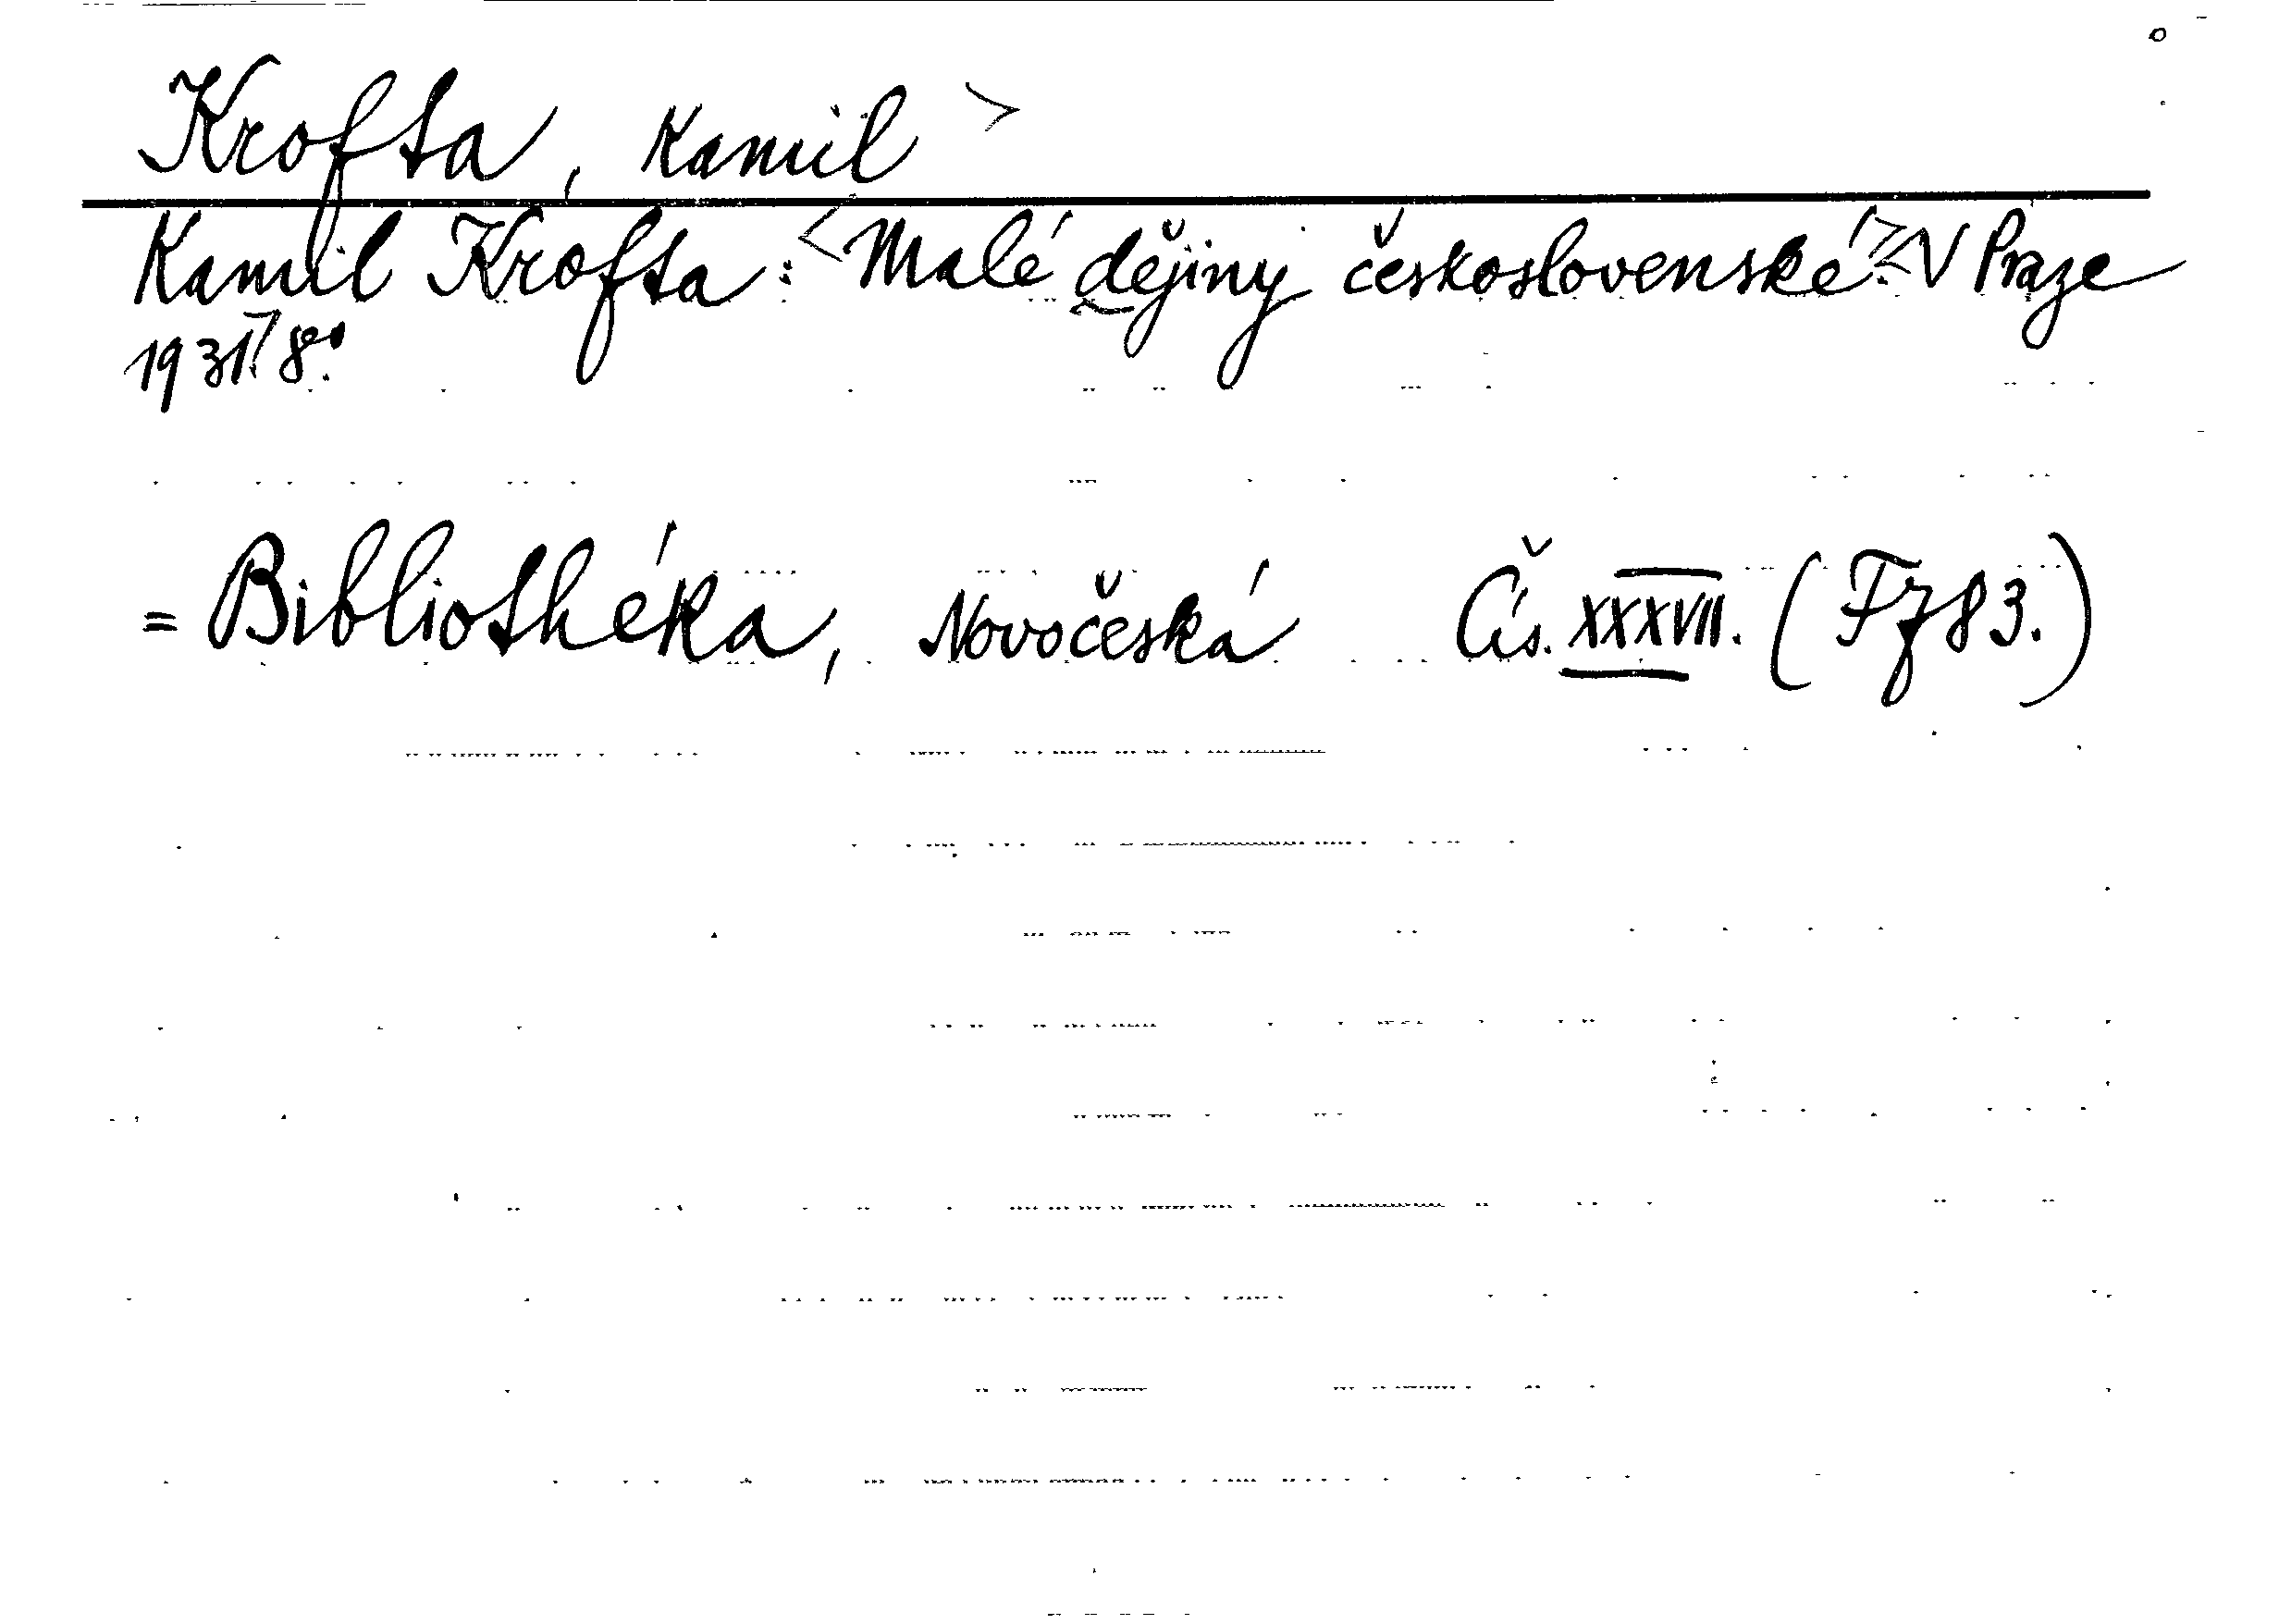 Krofta, Kamil >
Kamil Krofta: <Malé dějiny československé.> <V Praze
1931.> 8°.
= Bibliothéka, Novočeská Čís. XXXVII. (Fz 83.)